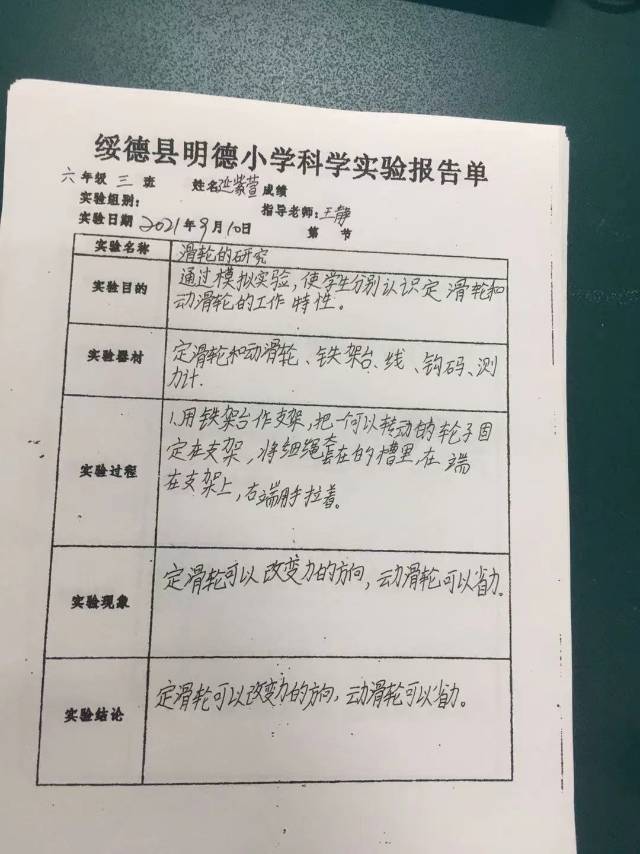 绥德县明德小学科学实验报告单
六年级 三 班 姓名延紫萱成绩
实验组别: 指导老师:王静
实验日期 2021年9月10日 第 节
实验名称 滑轮的研究
实验目的 通过模拟实验,使学生分别认识定滑轮和
动滑轮的工作特性。
实验器材 定滑轮和动滑轮、铁架台、线、钩码、测
力计.
实验过程 1.用铁架台作支架,把一个可以转动的轮子固
定在支架,将细绳套在的槽里,在 端
在支架上,右端用手拉着。
实验现象 定滑轮可以改变力的方向,动滑轮可以省力.
实验结论 定滑轮可以改变力的方向,动滑轮可以省力。